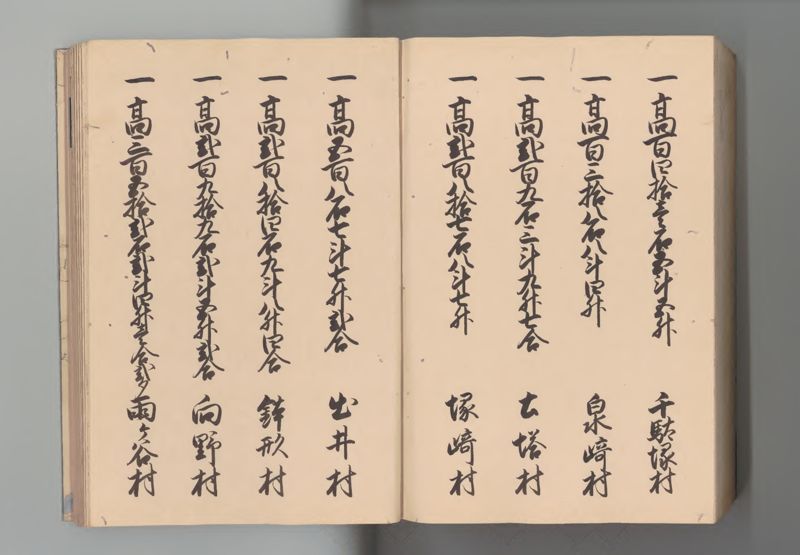 一 高百四拾壱石五斗五升 千駄塚村
一 高百三拾八石八斗四升 泉崎村
一 高弐百九石三斗九升七合 古塔村
一 高弐百八拾七石八斗七升 塚崎村
一 高五百八石七斗七升弐合 出井村
一 高弐百八拾四石九斗八升四合 鉢形村
一 高弐百九拾九石弐斗五升弐合 向野村
一 高三百五拾弐石弐斗四升壱合弐夕 雨ヶ谷村